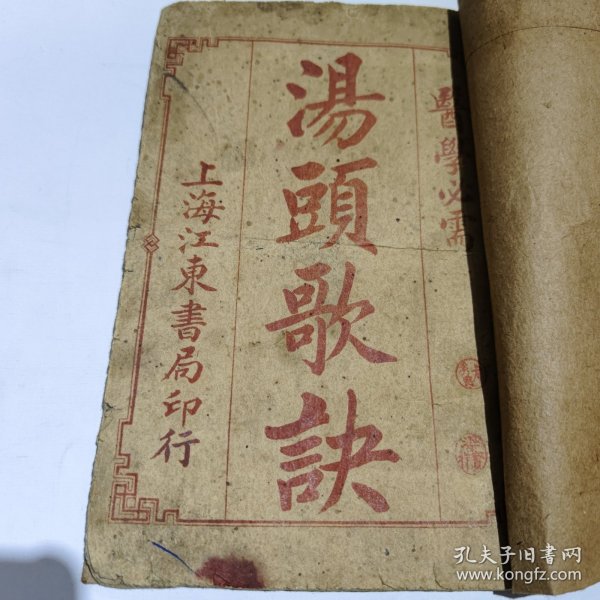 醫學必需
湯頭歌訣
上海江東書局印行
孔夫子旧书网
www.kongfz.com